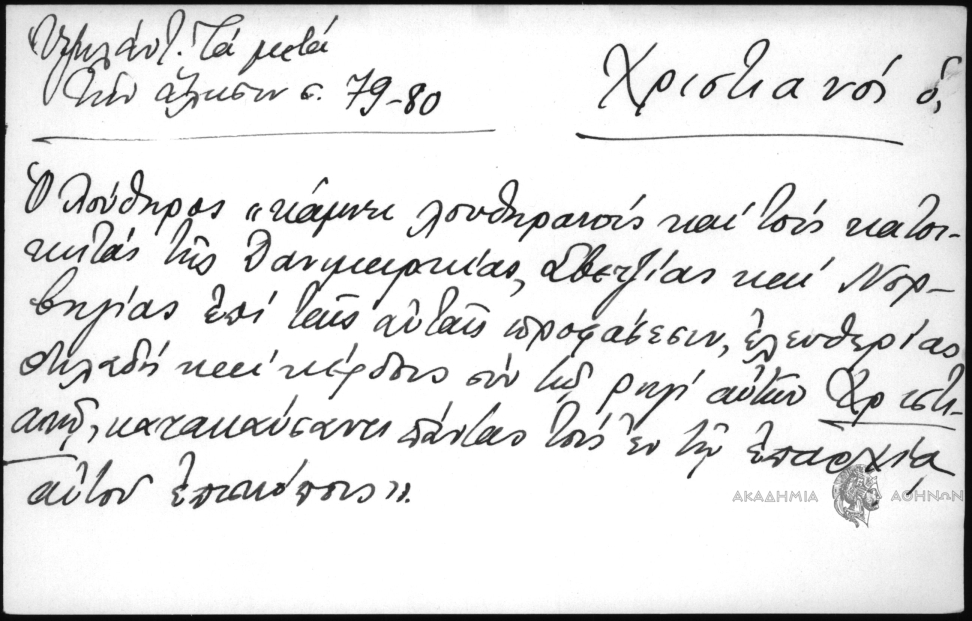 Ὑψηλάντ. Τά μετά
τήν ἅλωσιν σ. 79-80
Χριστιανός ὁ,
Ὁ Λούθηρος "κάμνει λουθηρανούς καί τούς κατοι-
κητάς τῆς Δανιμαρκίας, Σβετζίας καί Νορ-
βηγίας ἐπί ταῖς αὐταῖς προφάσεσιν, ἐλευθερίας
δηλαδή καί κέρδους σύν τῷ ρηγί αὐτῶν Χριστι-
ανῷ, κατακαύσαντι πάντας τούς ἐν τῇ ἐπαρχίᾳ
αὐτοῦ ἐπισκόπους".
ΑΚΑΔΗΜΙΑ ΑΘΗΝΩΝ